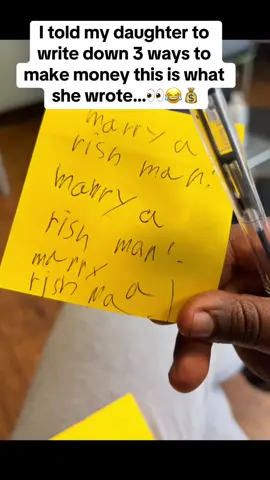 I told my daughter to
write down 3 ways to
make money this is what
she wrote...👀😂💰
marry a
rish man!
marry a
rish man!
marry
rish ma a